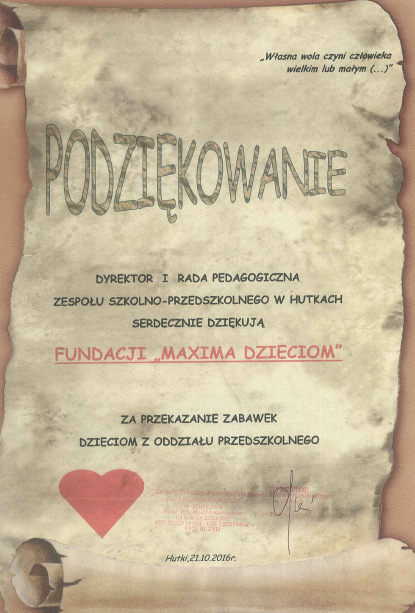 „Własna wola czyni człowieka
wielkim lub małym (...)”
PODZIĘKOWANIE
DYREKTOR I RADA PEDAGOGICZNA
ZESPOŁU SZKOLNO-PRZEDSZKOLNEGO W HUTKACH
SERDECZNIE DZIĘKUJĄ
FUNDACJI „MAXIMA DZIECIOM”
ZA PRZEKAZANIE ZABAWEK
DZIECIOM Z ODDZIAŁU PRZEDSZKOLNEGO
DYREKTOR
Hutki,21.10.2016r.